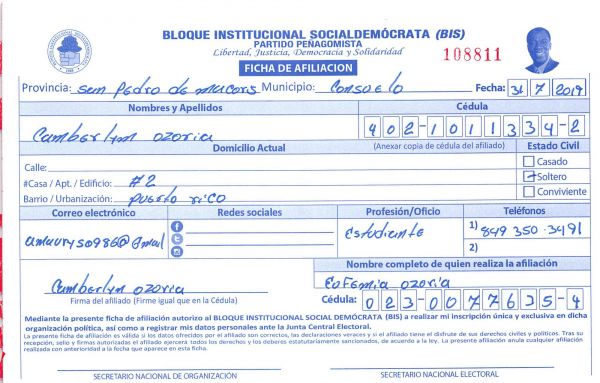 BLOQUE INSTITUCIONAL SOCIALDEMÓCRATA (BIS)
PARTIDO PEÑAGOMISTA
Libertad, Justicia, Democracia y Solidaridad
108811
FICHA DE AFILIACION
Provincia: San Pedro de Macoris Municipio: Consuelo Fecha: 31 7 2019
Nombres y Apellidos Cédula
Camberlyn Ozoria 402-1011334-2
Domicilio Actual (Anexar copia de cédula del afiliado) Estado Civil
Calle: Casado
#Casa / Apt. / Edificio: #2 Soltero
Barrio / Urbanización: Puerto Rico Conviviente
Correo electrónico Redes sociales Profesión/Oficio Teléfonos
amaury50986@gmail Estudiante 1) 849 350-3491
2)
Nombre completo de quien realiza la afiliación
Camberlyn Ozoria Eufemia Ozoria
Firma del afiliado (Firme igual que en la Cédula) Cédula: 023-0077635-4
Mediante la presente ficha de afiliación autorizo al BLOQUE INSTITUCIONAL SOCIAL DEMÓCRATA (BIS) a realizar mi inscripción única y exclusiva en dicha
organización política, así como a registrar mis datos personales ante la Junta Central Electoral.
La presente ficha de afiliación es válida si los datos ofrecidos por el afiliado son correctos, las declaraciones veraces y si el afiliado tiene el disfrute de sus derechos civiles y políticos. Tras su
recepción, sello y firmas autorizadas el afiliado ejercerá todos los derechos y los deberes estatutariamente sancionados, de acuerdo a la ley. La presente afiliación anula cualquier afiliación
realizada con anterioridad a la fecha que aparece en esta ficha.
SECRETARIO NACIONAL DE ORGANIZACIÓN SECRETARIO NACIONAL ELECTORAL